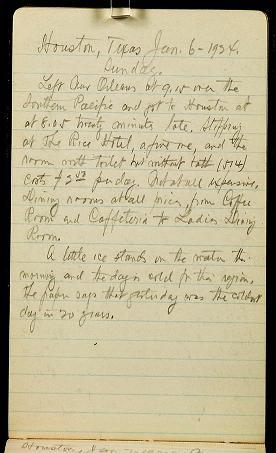 Houston, Texas Jan. 6-1924.
Sunday.
Left New Orleans at 9.15 over the
Southern Pacific and got to Houston at
at 8.05 twenty minutes late. Stopping
at The Rice Hotel, a fine one, and the
room with toilet but without bath (514)
costs $2 50 per day. Not at all expensive.
Dining rooms at all prices, from Coffee
Room and Caffeteria to Ladies Dining
Room.
A little ice stands on the water this
morning and the day is cold for this region.
The paper says that yesterday was the coldest
day in 20 years.
Houston, Jan.